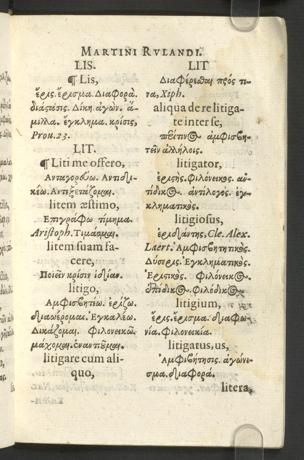 MARTINI RVLANDI.
LIS.
¶ Lis,
ἔρις. ἔρισμα. Διαφορὰ.
διάστασις. Δίκη. ἀγών. ἅ-
μιλλα. ἔγκλημα. κρίσις,
Prou. 23.
LIT.
¶ Liti me offero,
litem æstimo,
Ἐπιγράφω τίμημα.
Aristoph. Τιμάομαι.
litem suam fa-
cere,
Ποιεῖν κρίσιν ἰδίαν.
litigo,
Ἀμφισβητέω. ἐρίζω.
Ἐγκαλέω.
Δικάζομαι. Φιλονεικῶ.
μάχομαι.
litigare cum ali-
quo,
LIT
Διαφέρεσθαι πρός τι-
να, Xiph.
aliqua de re litiga-
te inter se,
περί τινος ἀμφισβη-
τεῖν ἀλλήλοις.
litigator,
ἐριστής. Φιλόνεικος. ἀν-
τίδικος. ἀντίλογος. ἐγ-
κληματικός.
litigiosus,
Cle. Alex.
Laert. Ἀμφισβητητικός.
Δύσερις. Ἐγκληματικός.
Ἐριστικός. Φιλόνεικος.
Φιλόδικος.
litigium,
ἔρις. ἔρισμα. διαφω-
νία. Φιλονεικία.
litigatus, us,
Ἀμφισβήτησις. ἀγώνι-
σμα. διαφορά.
litera,